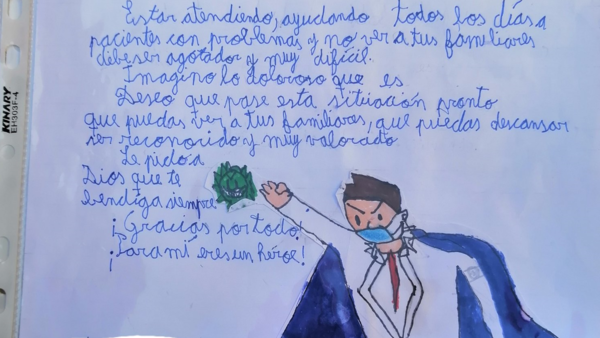 Estar atendiendo, ayudando todos los días a
pacientes con problemas y no ver a tus familiares
debe ser agotador y muy difícil.
Imagino lo doloroso que es
Deseo que pase esta situación pronto
que puedas ver a tus familiares, que puedas descansar
ser reconocido y muy valorado
Le pido a
Dios que te
bendiga siempre
¡Gracias por todo!
¡Para mí eres un héroe!
KINARY
EH303F-4